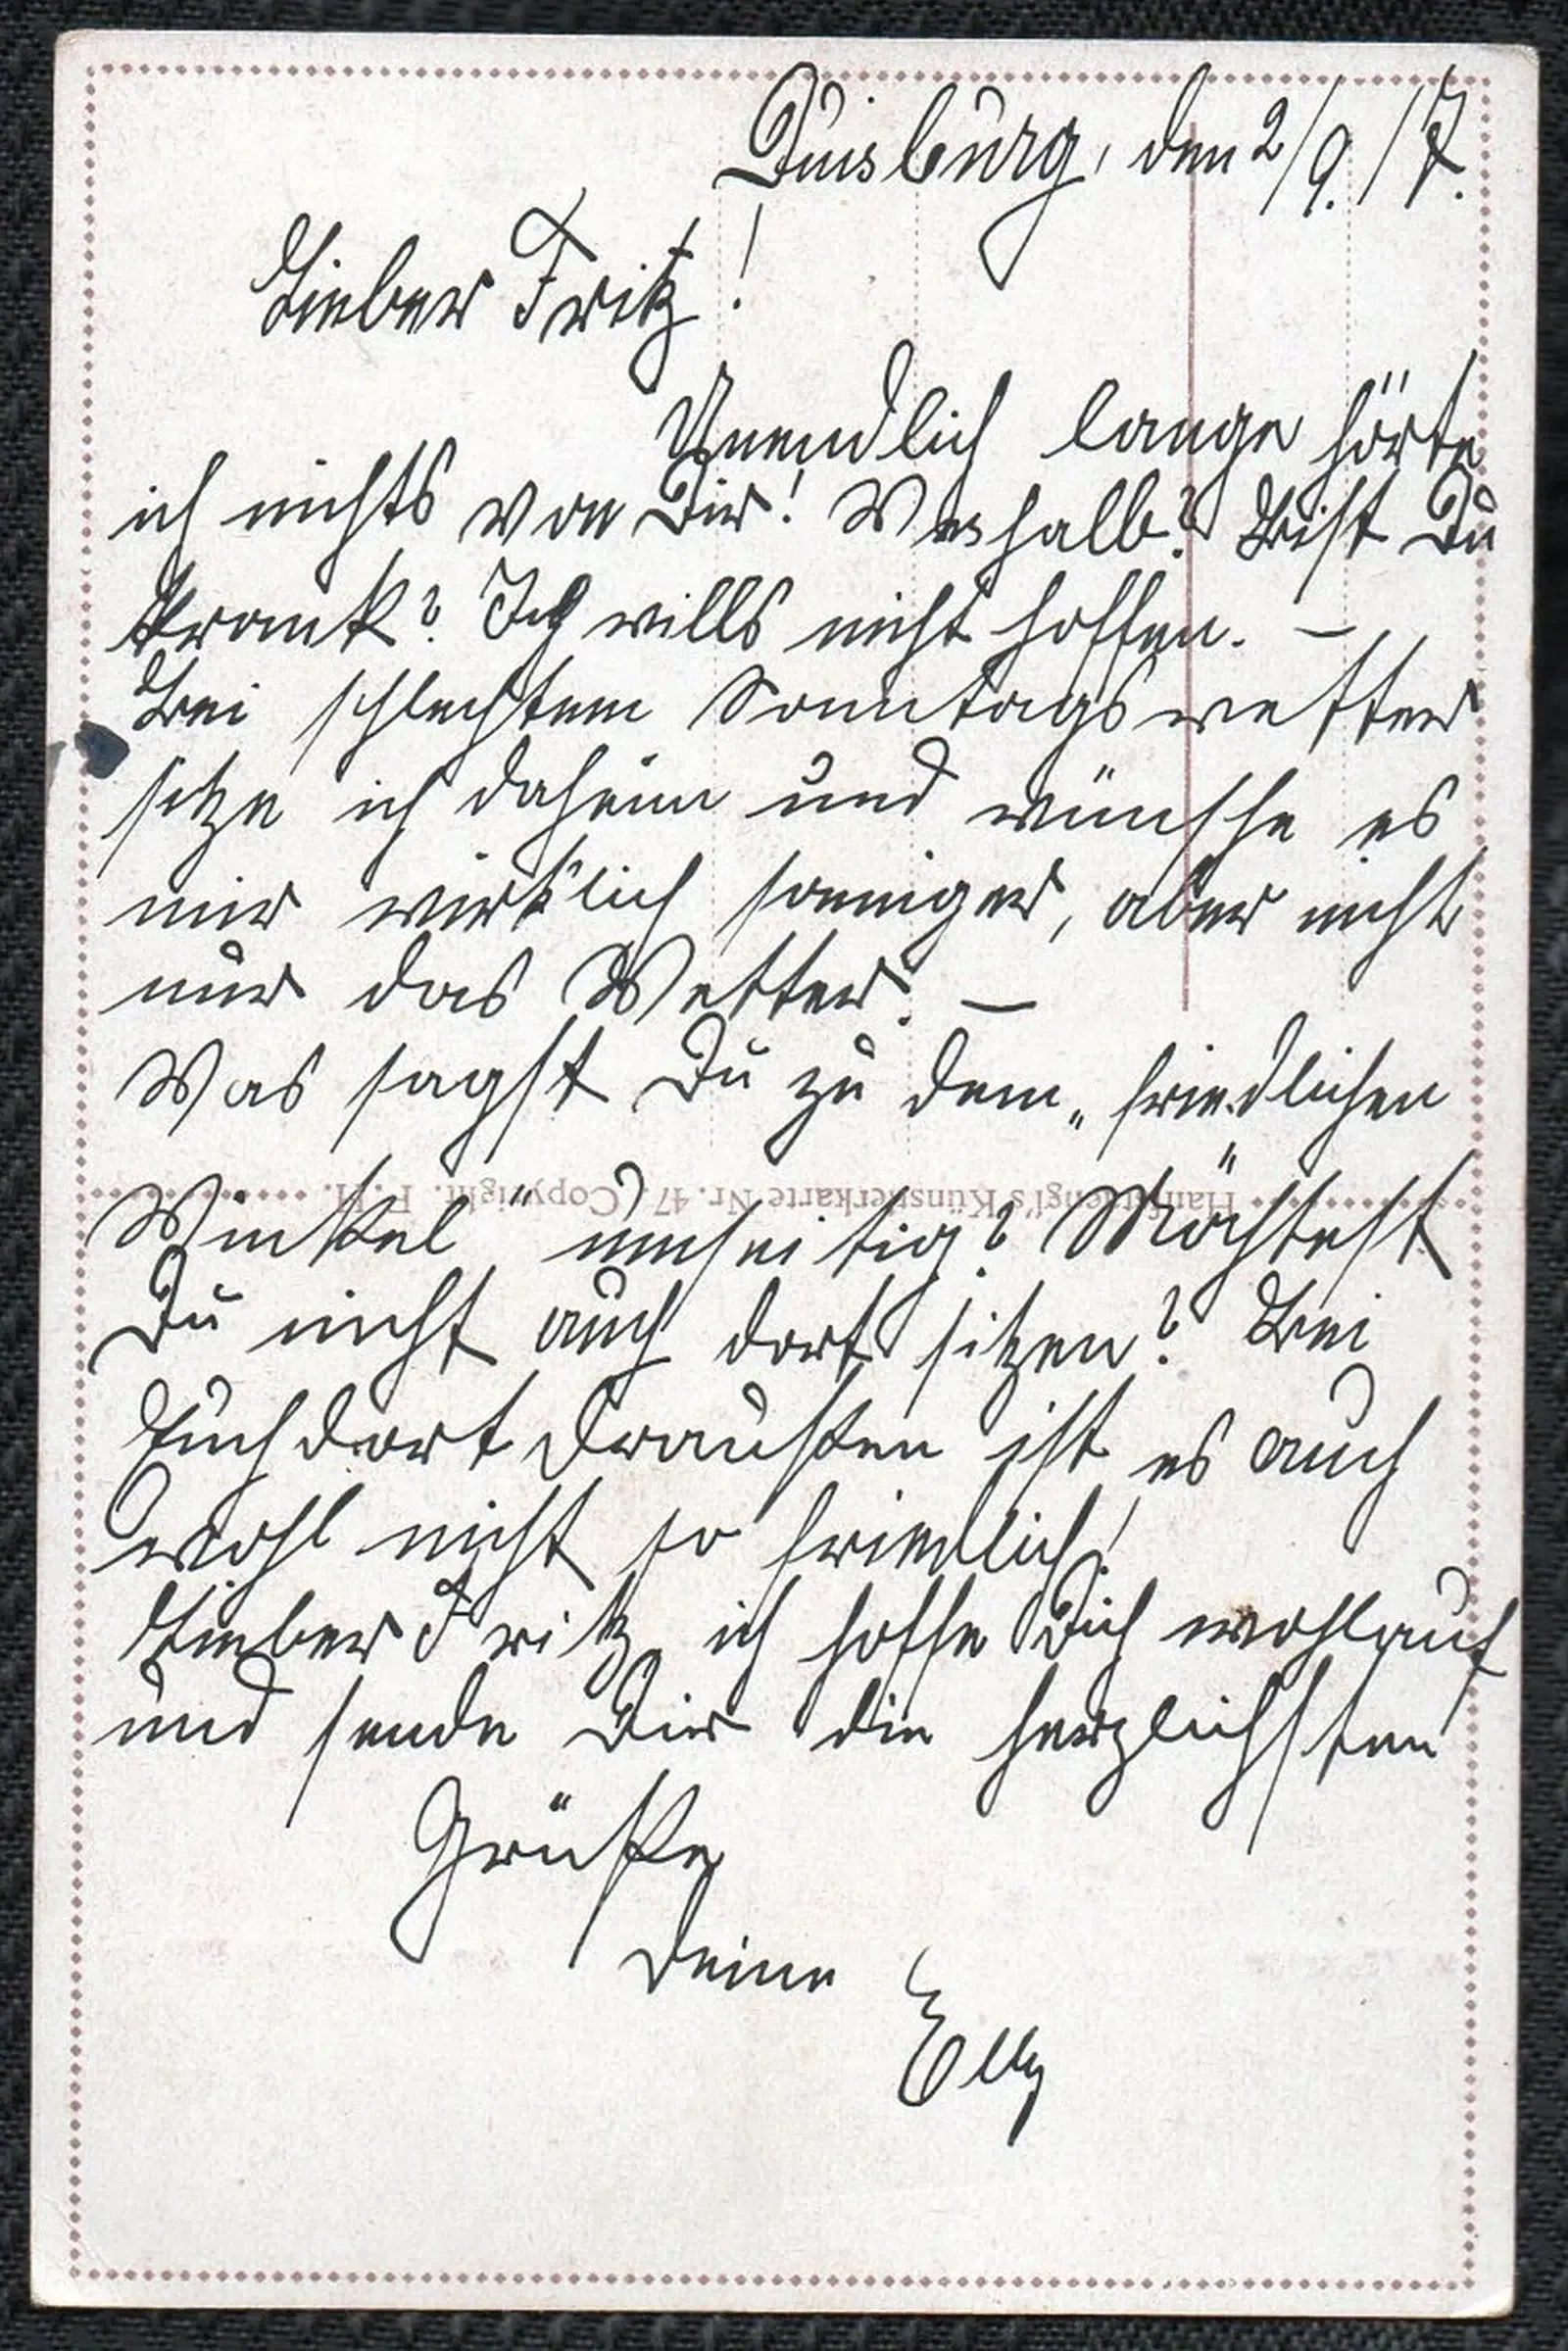 Duisburg, den 2/9. 17.
Lieber Fritz!
Unendlich lange hörte
ich nichts von Dir! Weshalb? Bist Du
krank? Ich wills nicht hoffen. —
Bei schlechtem Sonntagswetter
sitze ich daheim und wünsche es
mir wirklich sonniger, aber nicht
nur das Wetter. —
Was sagst Du zu dem „friedlichen
Hanfstaengl's Künstlerkarte Nr. 47 (Copyright. F. H.
Winkel" umseitig? Möchtest
Du nicht auch dort sitzen? Bei
Euch dort draußen ist es auch
wohl nicht so friedlich!
Lieber Fritz, ich hoffe Dich wohlauf
und sende Dir die herzlichsten
Grüße
Deine
Elly